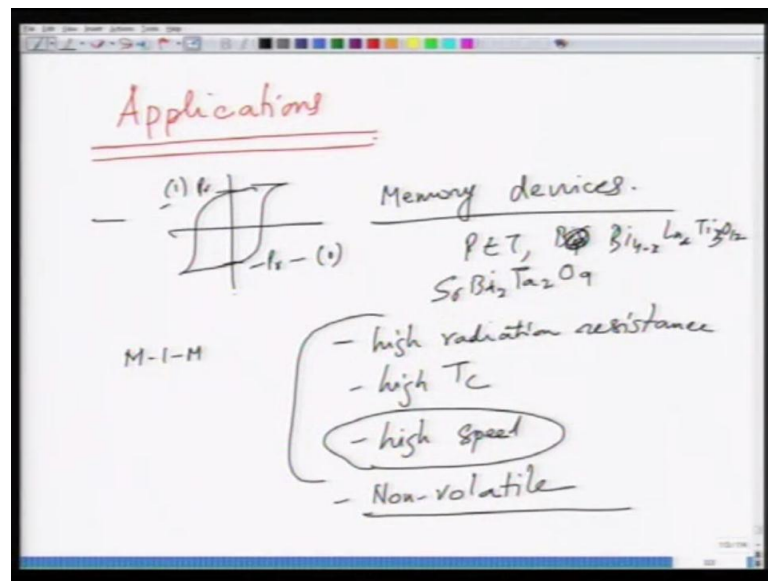 Applications
(1) Pr
Memory devices.
-Pr - (0)
PZT, Bi4-xLaxTi3O12
SrBi2Ta2O9
- high radiation resistance
M-I-M
- high Tc
- high speed
- Non-volatile